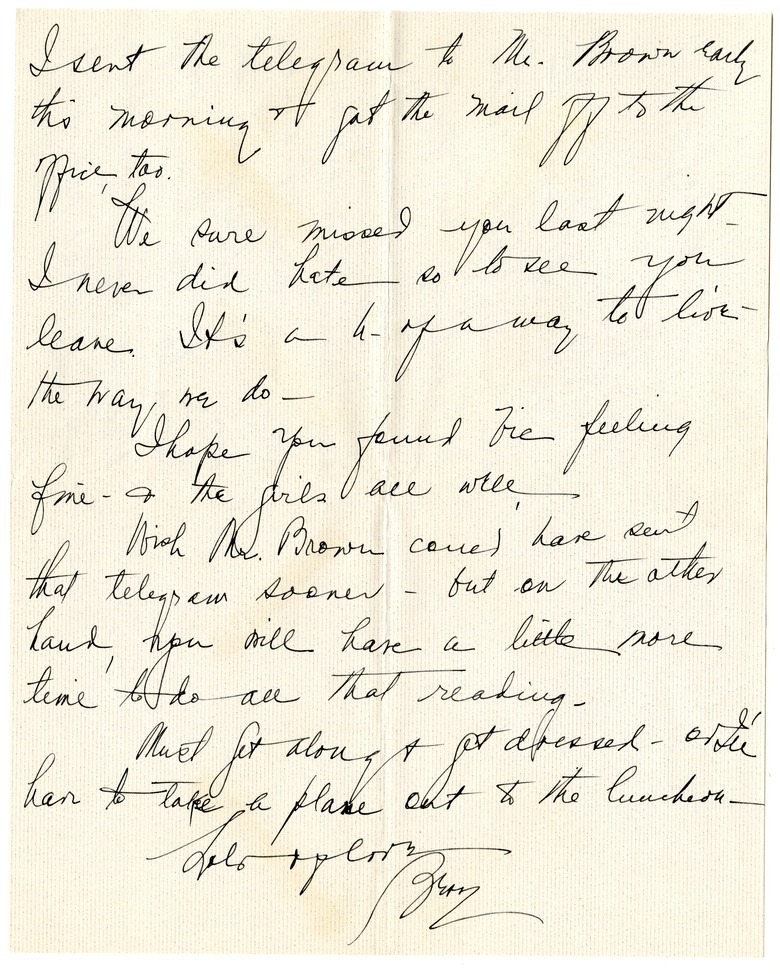 I sent the telegram to Mr. Brown early
this morning & got the mail off to the
office, too.
We sure missed you last night -
I never did hate so to see you
leave. It's a h- of a way to live -
the way we do -
I hope you found Vic feeling
fine - & the girls all well.
Wish Mr. Brown could have sent
that telegram sooner - but on the other
hand, you will have a little more
time to do all that reading.
Must get along & get dressed - or I'll
have to take a plane out to the luncheon -
Lots of love